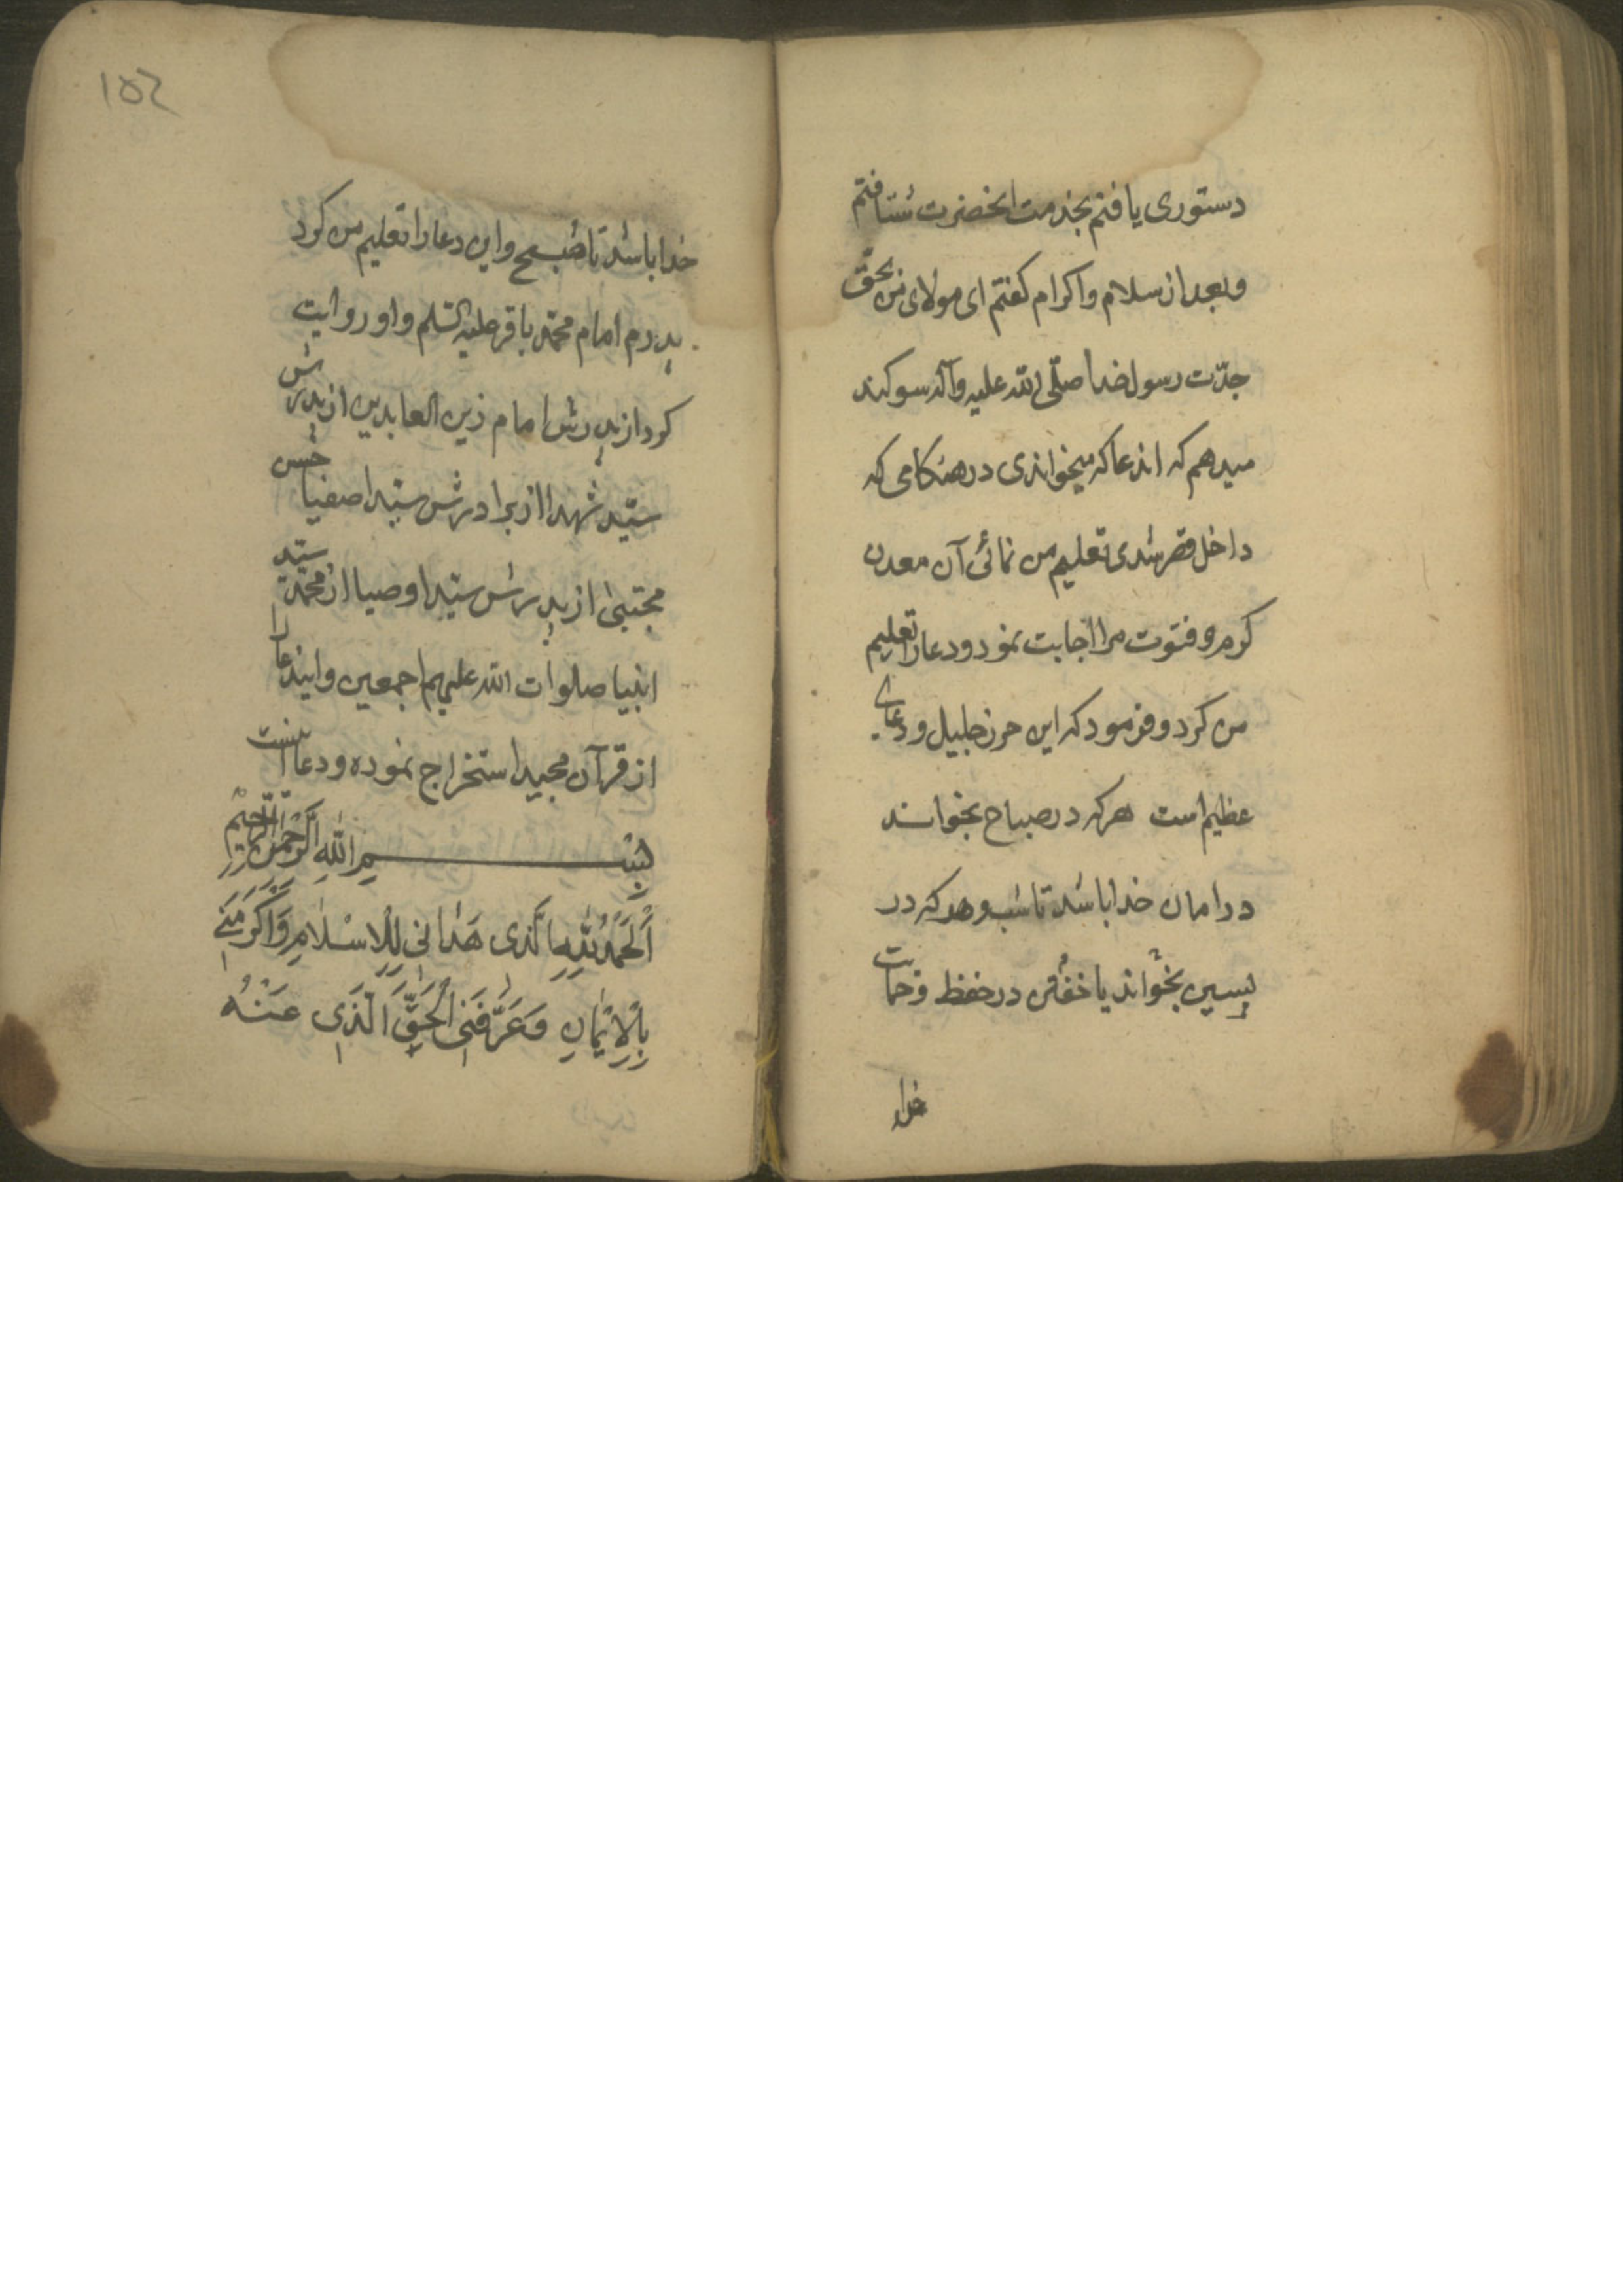 دستوری یافتم بخدمت انحضرت شتافتم
وبعد از سلام واکرام کفتم ای مولای من بحقّ
جدّت رسول خدا صلّی الله علیه وآله سوکند
میدهم که اندعا که میخواندی در هنکامی که
داخل قصر شدی تعلیم من نمائی آن معدن
کرم و فتوت مرا اجابت نمود و دعا را تعلیم
من کرد و فرمود که این حرز جلیل و دعای
عظیم است هرکه در صباح بخواند
در امان خدا باشد تا شب و هرکه در
پسین بخواند یا خفتن در حفظ و حمایت
خدا
۱۵۲
خدا باشد تا صبح واین دعا را تعلیم من کرد
پدرم امام محمّد باقر علیه السّلم واو روایت
کرد از پدرش امام زین العابدین از پدرش
سیّد شهدا از برادرش سیّد اصفیا حسن
مجتبی از پدرش سیّد اوصیا از محمّد سیّد
انبیا صلوات الله علیهم اجمعین وایندعا را
از قرآن مجید استخراج نموده و دعا اینست
بِسْمِ اللهِ الرَّحْمٰنِ الرَّحِیْمِ
اَلْحَمْدُ لِلّٰهِ الَّذی هَدٰانی لِلْاِسْلٰامِ وَاَکْرَمَنی
بِالْاِیْمٰانِ وَعَرَّفَنِی الْحَقَّ الَّذی عَنْهُ